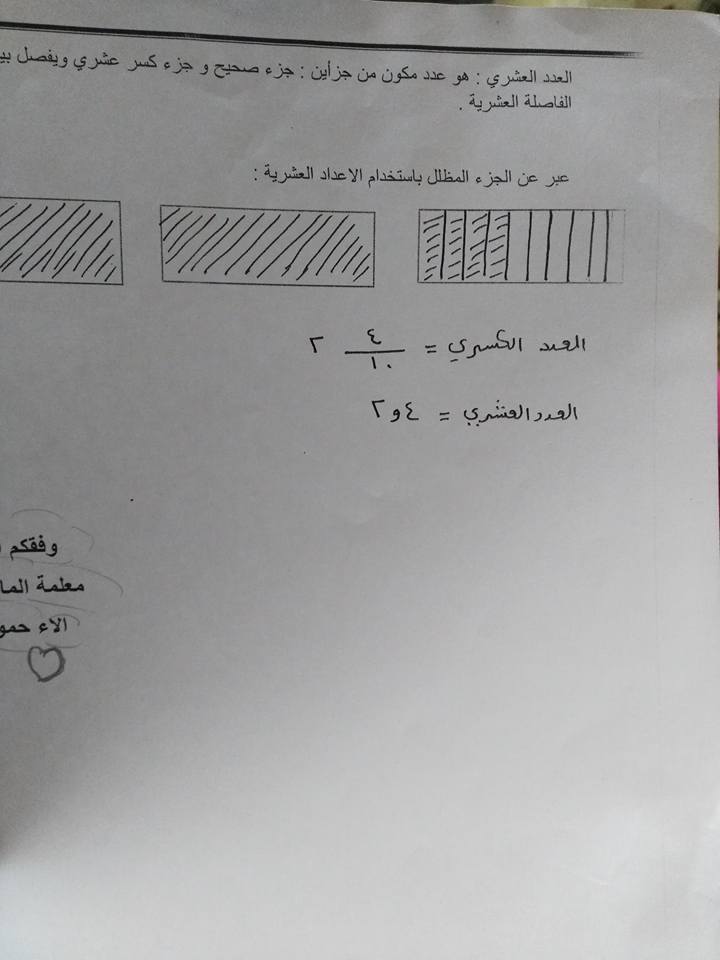 العدد العشري : هو عدد مكون من جزأين : جزء صحيح و جزء كسر عشري ويفصل
الفاصلة العشرية .
عبر عن الجزء المظلل باستخدام الاعداد العشرية :
العدد الكسري = ٤/١٠ ٢
العدد العشري = ٤و٢
وفقكم
معلمة
الاء